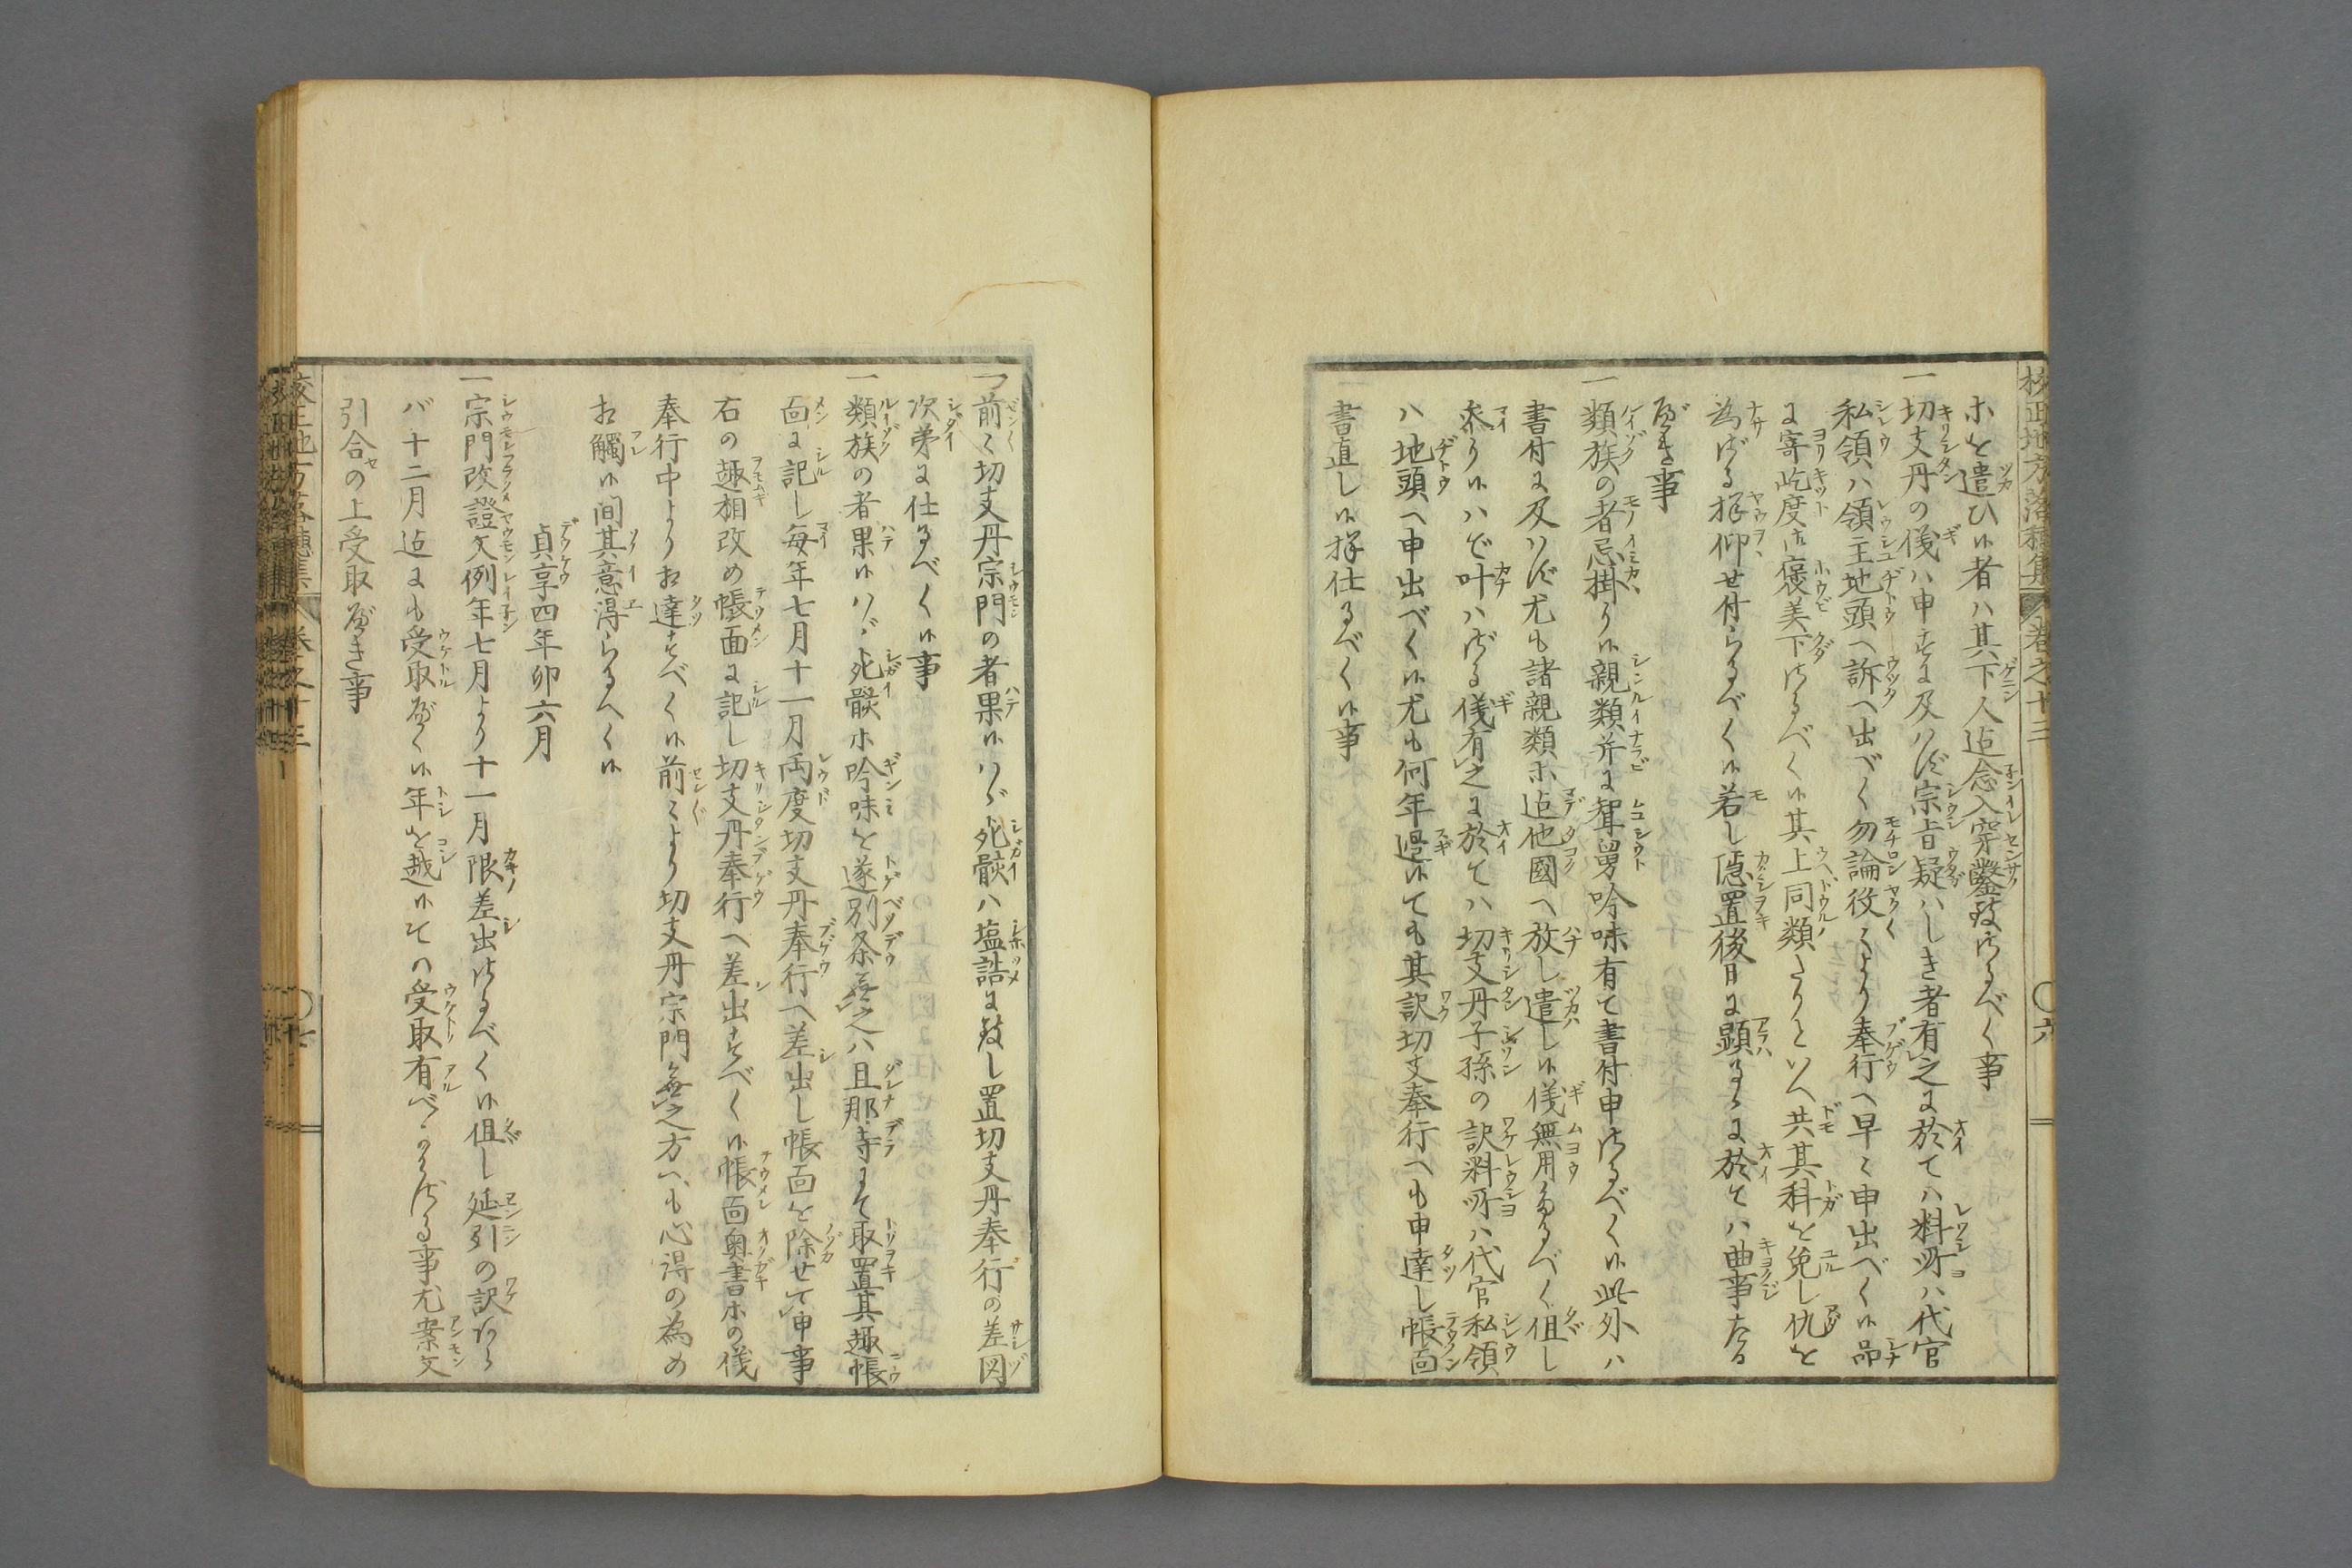 校正地方落穂集 巻之十三 〇六
ホを遣ひ候者ハ其下人迠念入穿鑿致さるべく事
一切支丹の儀ハ申すに及ハず宗旨疑ハしき者有之に於てハ料所ハ代官
私領ハ領主地頭へ訴へ出べく勿論役〻より奉行へ早〻申出べく候品
に寄屹度御褒美下さるべく候其上同類たりといへ共其科を免し仇を
為ざる様仰せ付らるべく候若し隠置後日に顕るゝに於てハ曲事たる
べき事
一類族の者忌掛り候親類并に聟舅吟味有て書付申さるべく候此外ハ
書付に及ハず尤も諸親類ホ迠他國へ放し遣し候儀無用たるべく但し
参り候ハで叶ハざる儀有之に於てハ切支丹子孫の訳料所ハ代官私領
ハ地頭へ申出べく候尤も何年過候ても其訳切支奉行へも申達し帳面
書直し候様仕るべく候事
一前〻切支丹宗門の者果候ハゞ死骸ハ塩詰に致し置切支丹奉行の差図
次第に仕るべく候事
一類族の者果候ハゞ死骸ホ吟味を遂別条無之ハ旦那寺にて取置其趣帳
面に記し毎年七月十一月両度切支丹奉行へ差出し帳面を除せ申事
右の趣相改め帳面に記し切支丹奉行へ差出すべく候帳面奥書ホの儀
奉行中より相達すべく候前〻より切支丹宗門無之方へも心得の為め
相觸候間其意得らるへく候
貞享四年卯六月
一宗門改證文例年七月より十一月限差出さるべく候但し延引の訳あら
バ十二月迠にも受取べく候年を越候ての受取有べからざる事尤案文
引合の上受取べき事
校正地方落穂集 巻之十三 〇七